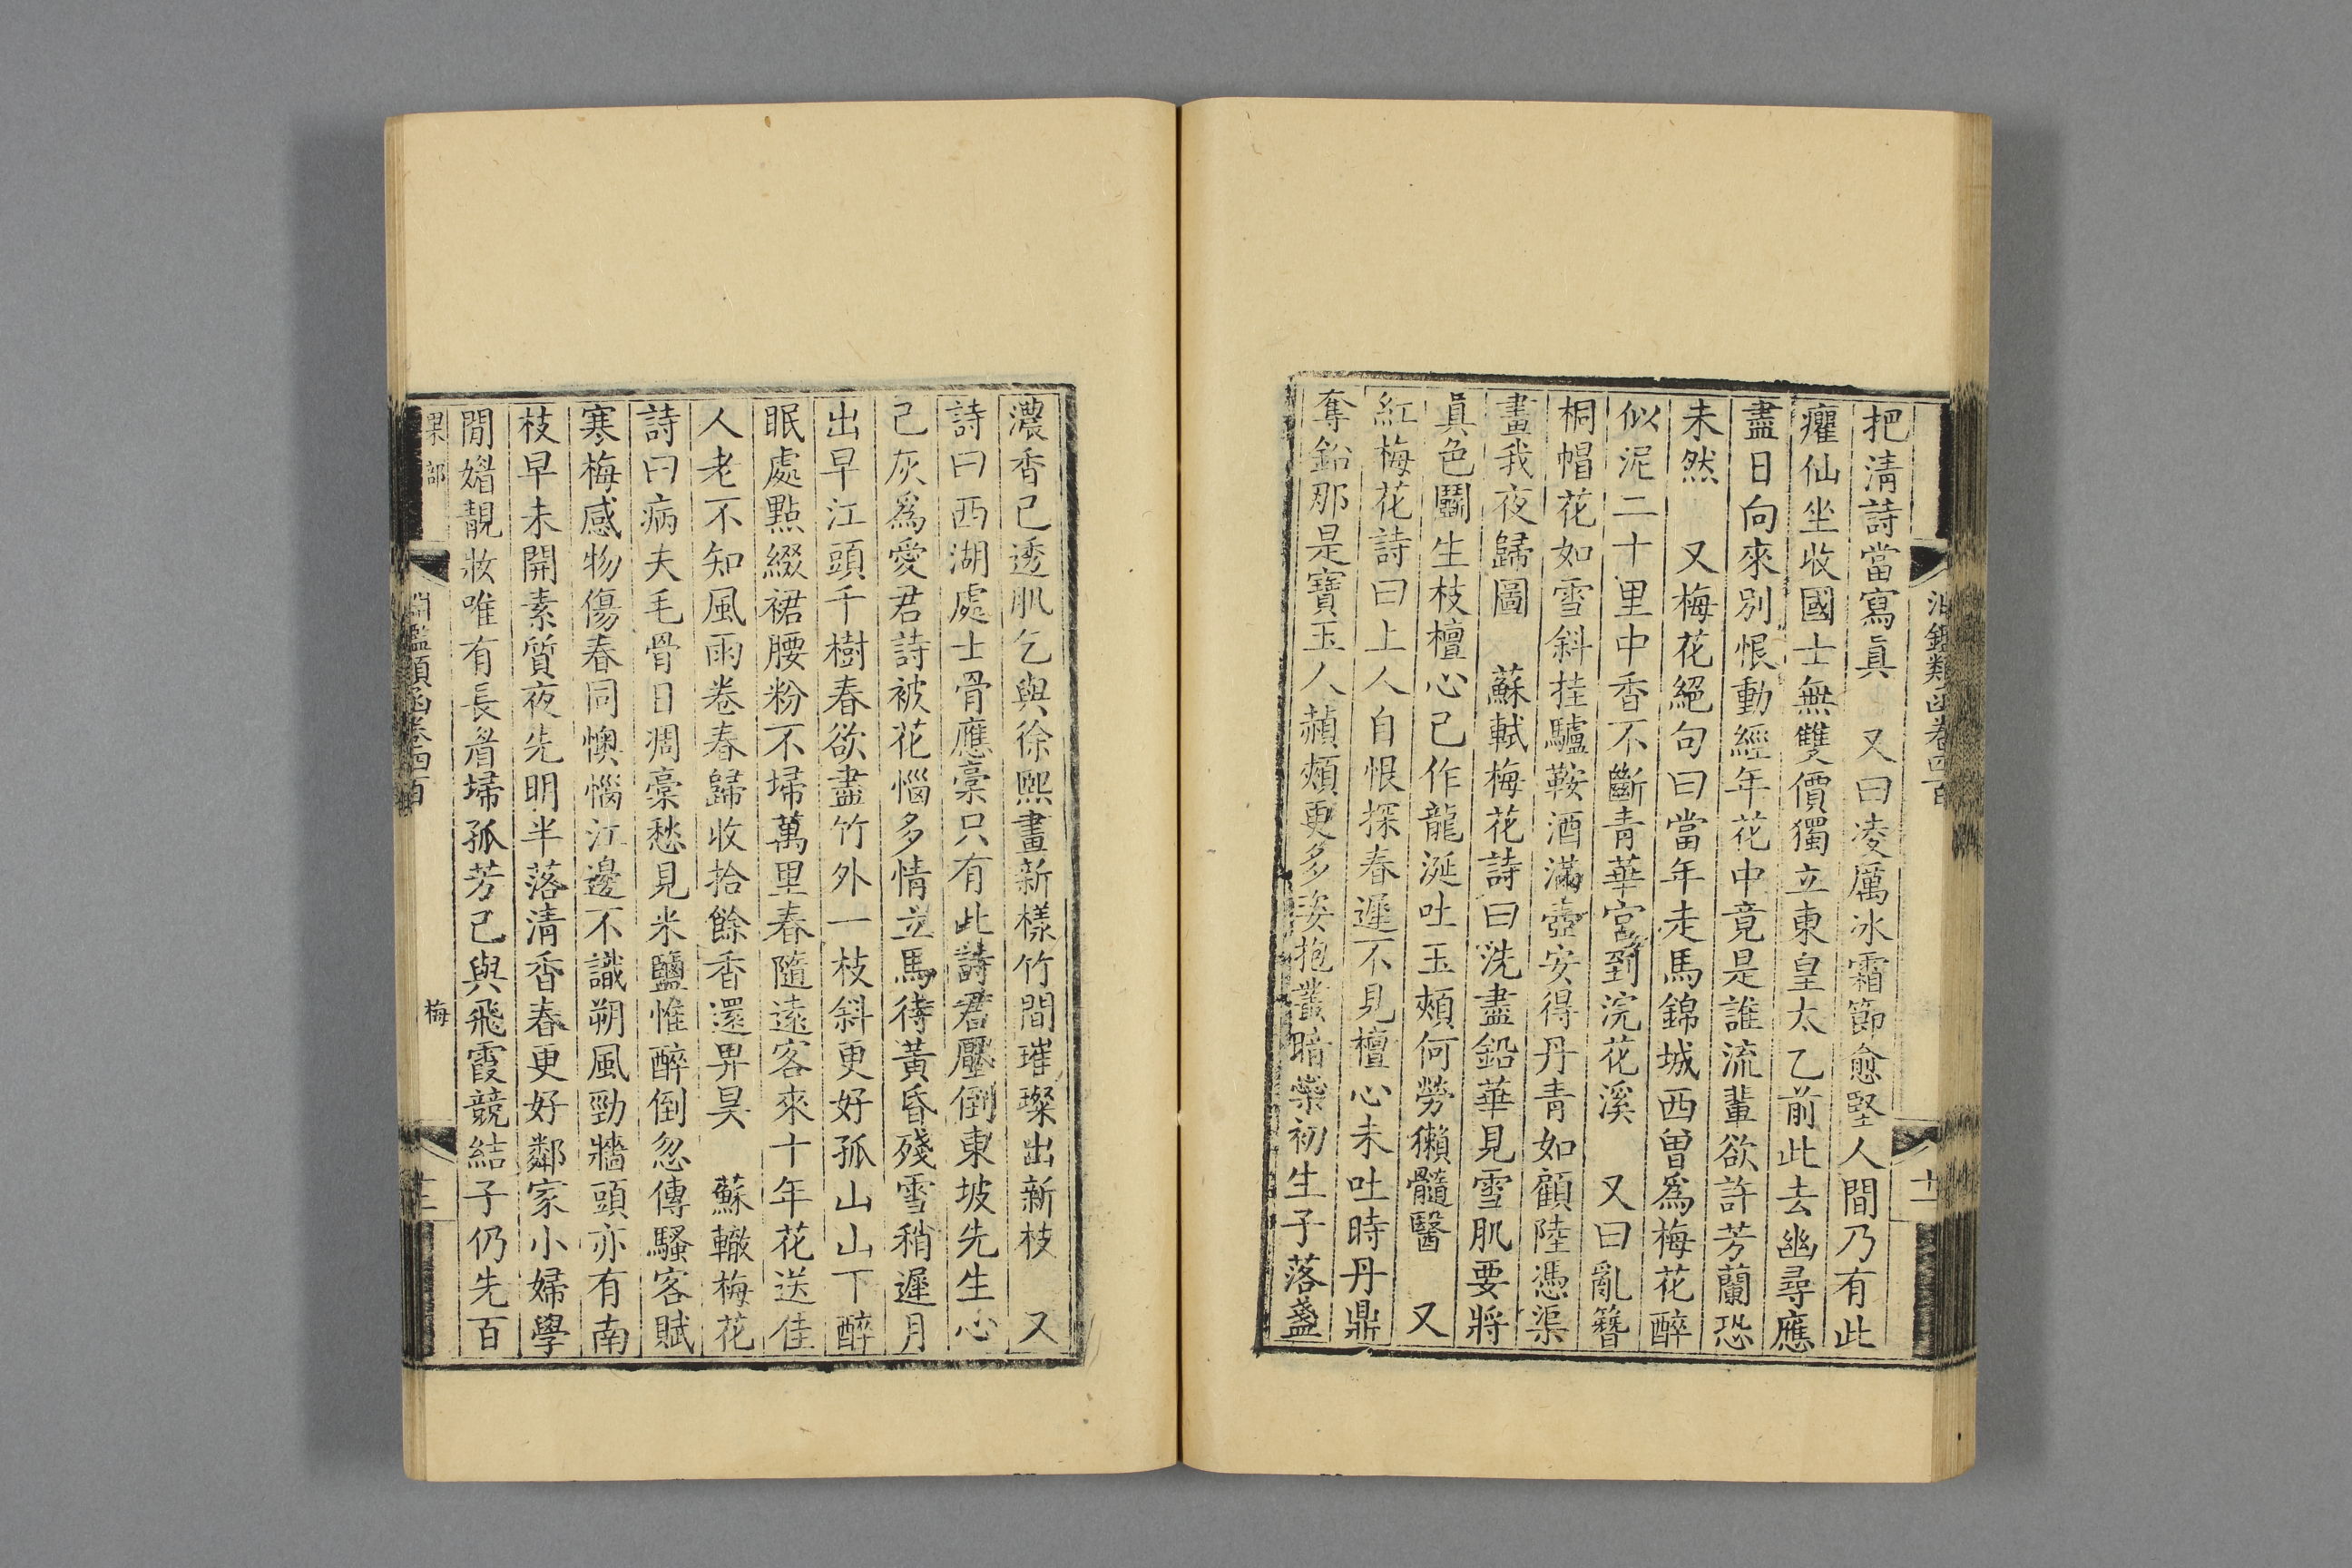 淵鑑類函卷四百
十二
把淸詩當寫眞 又曰凌厲冰霜節愈堅人間乃有此
癯仙坐收國士無雙價獨立東皇太乙前此去幽尋應
盡日向來別恨動經年花中竟是誰流輩欲許芳蘭恐
未然 又梅花絕句曰當年走馬錦城西曾爲梅花醉
似泥二十里中香不斷靑華宮到浣花溪 又曰亂簪
桐帽花如雪斜挂驢鞍酒滿壺安得丹靑如顧陸憑渠
畫我夜歸圖 蘇軾梅花詩曰洗盡鉛華見雪肌要將
眞色鬭生枝檀心已作龍涎吐玉頰何勞獺髓醫 又
紅梅花詩曰上人自恨探春遲不見檀心未吐時丹鼎
奪鉛那是寶玉人頳頰更多姿抱叢暗蘂初生子落盞
濃香已透肌乞與徐熙畫新樣竹間璀璨出新枝 又
詩曰西湖處士骨應槀只有此詩君壓倒東坡先生心
已灰爲愛君詩被花惱多情立馬待黃昏殘雪稍遲月
出早江頭千樹春欲盡竹外一枝斜更好孤山山下醉
眠處點綴裙腰粉不埽萬里春隨遠客來十年花送佳
人老不知風雨卷春歸收拾餘香還畀昊 蘇轍梅花
詩曰病夫毛骨日凋槀愁見米鹽惟醉倒忽傳騷客賦
寒梅感物傷春同懊惱江邊不識朔風勁牆頭亦有南
枝早未開素質夜先明半落淸香春更好鄰家小婦學
閒媌靚妝唯有長眉埽孤芳已與飛霞競結子仍先百
果部
淵鑑類函卷四百
梅
十三